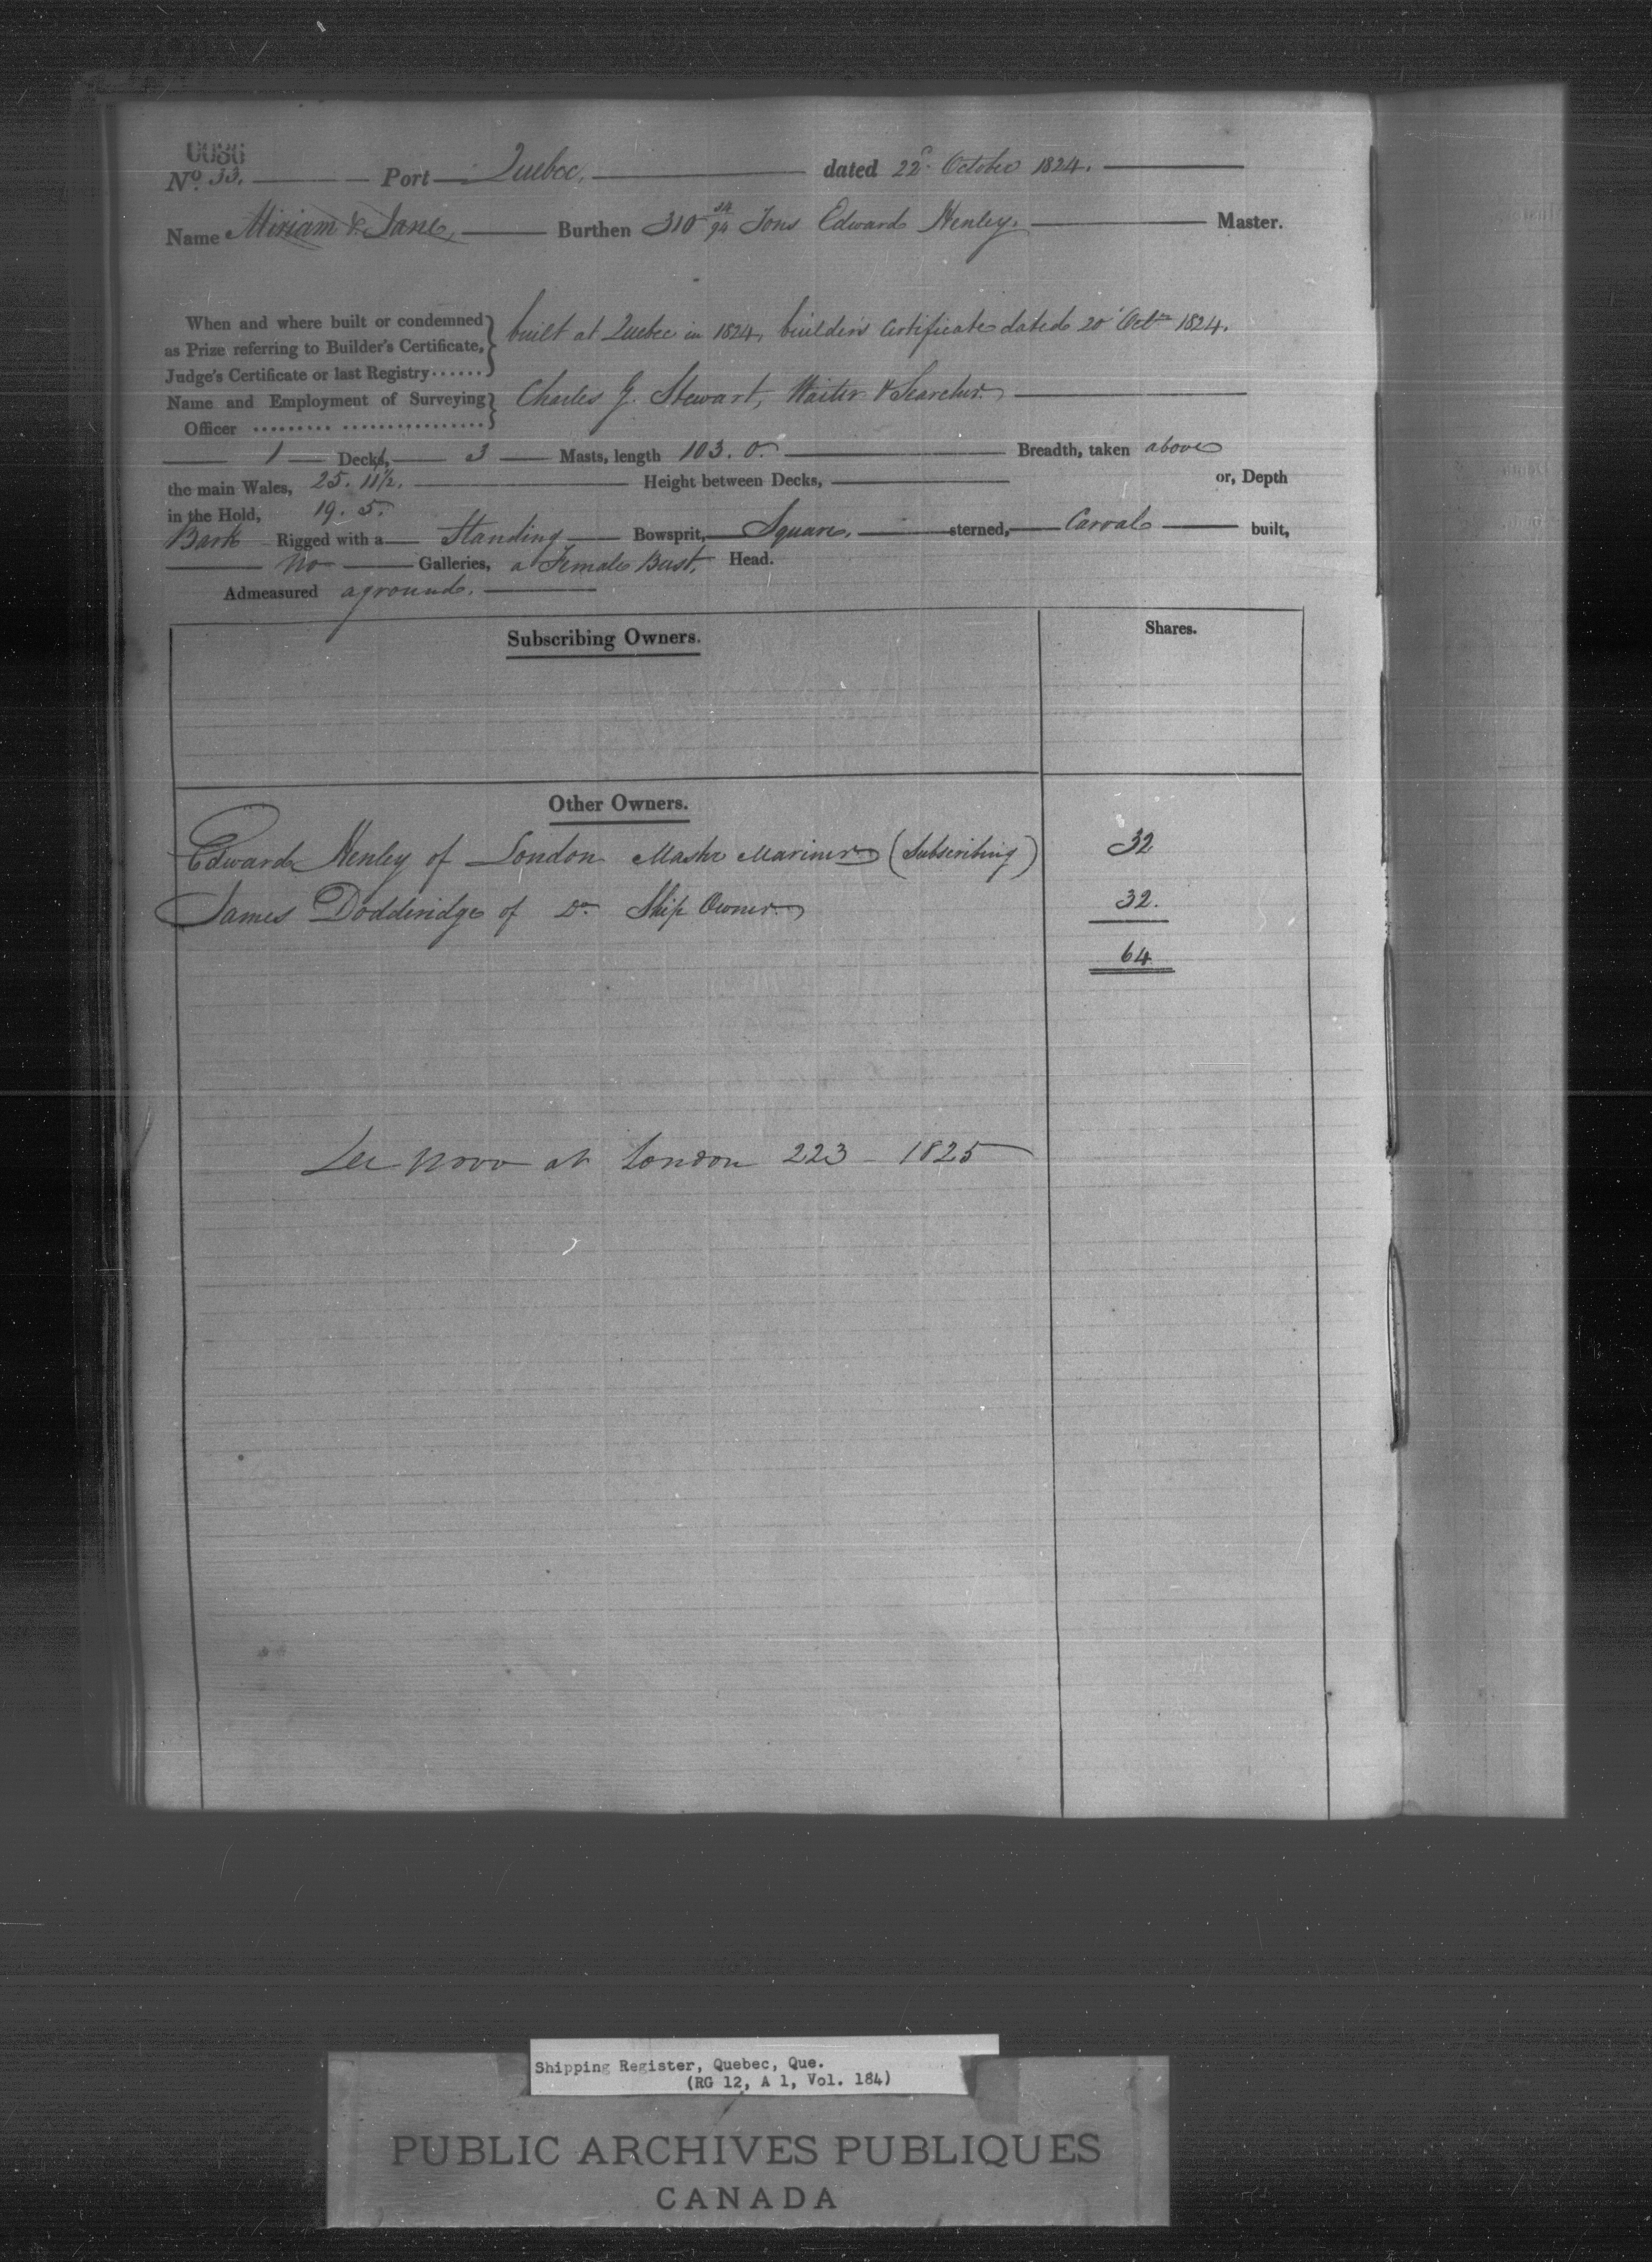 0086
No. 53. Port Quebec, dated 22d. October 1824.
Name Miriam & Jane, Burthen 310 34/94 Tons Edward Henley. Master.
When and where built or condemned
as Prize referring to Builder's Certificate,
Judge's Certificate or last Registry......
built at Quebec in 1824, builders Certificate dated 20 Octr. 1824.
Name and Employment of Surveying
Officer ......... ................
Charles G. Stewart, Waiter & Searcher.
1 Decks, 3 Masts, length 103. 0. Breadth, taken above
the main Wales, 25. 11 1/2. Height between Decks, or, Depth
in the Hold, 19. 5.
Bark Rigged with a Standing Bowsprit, Square, sterned, Carval built,
no Galleries, a Female Bust. Head.
Admeasured aground.
Subscribing Owners. Shares.
Other Owners.
Edward Henley of London Master Mariner (Subscribing) 32
James Dodderidge of Do. Ship Owner 32.
64
De novo at London 223 - 1825
Shipping Register, Quebec, Que.
(RG 12, A 1, Vol. 184)
PUBLIC ARCHIVES PUBLIQUES
CANADA